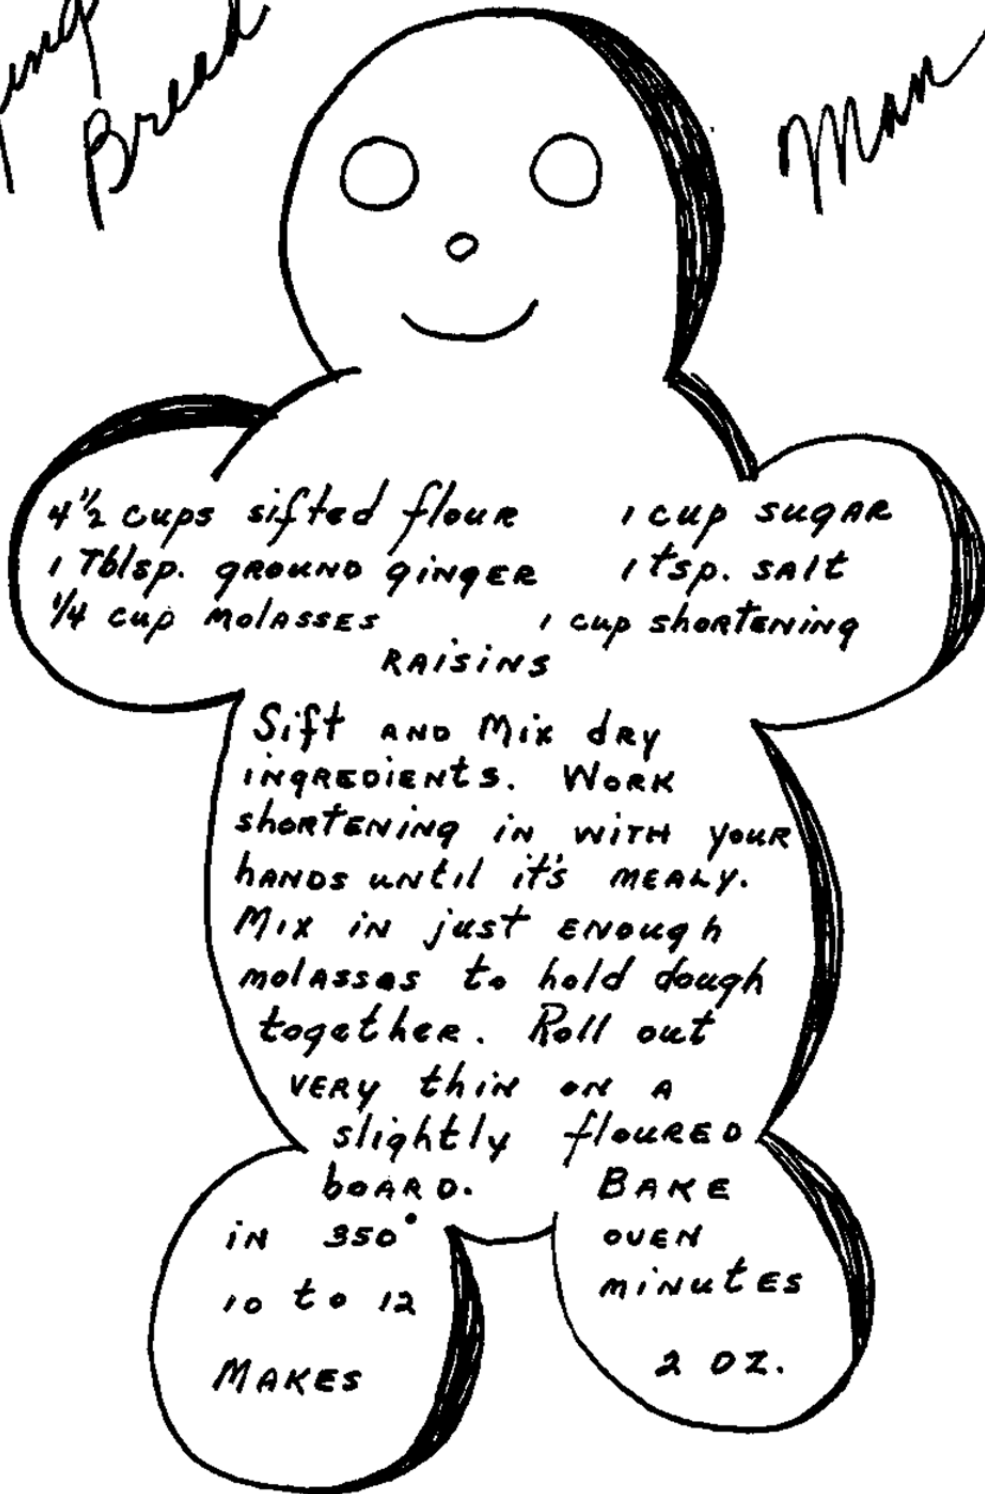 Bread Man
4 1/2 cups sifted flour 1 cup sugar
1 Tblsp. ground ginger 1 tsp. salt
1/4 cup molasses 1 cup shortening
Raisins
Sift and Mix dry
ingredients. Work
shortening in with your
hands until it's mealy.
Mix in just enough
molasses to hold dough
together. Roll out
very thin on a
slightly floured
board. Bake
in 350° oven
10 to 12 minutes
Makes 2 oz.